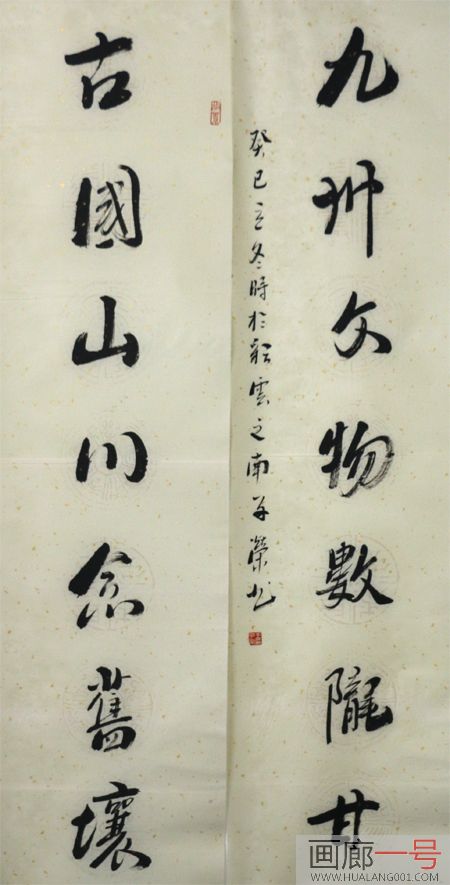 九州文物數隴甘
癸巳立冬時於雲之南榮书
古國山川念舊壤
画廊一号
WWW.HUALANG001.COM